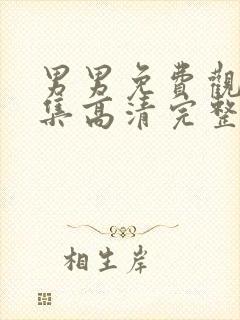 男男免費觀
集高清完整
相生岸